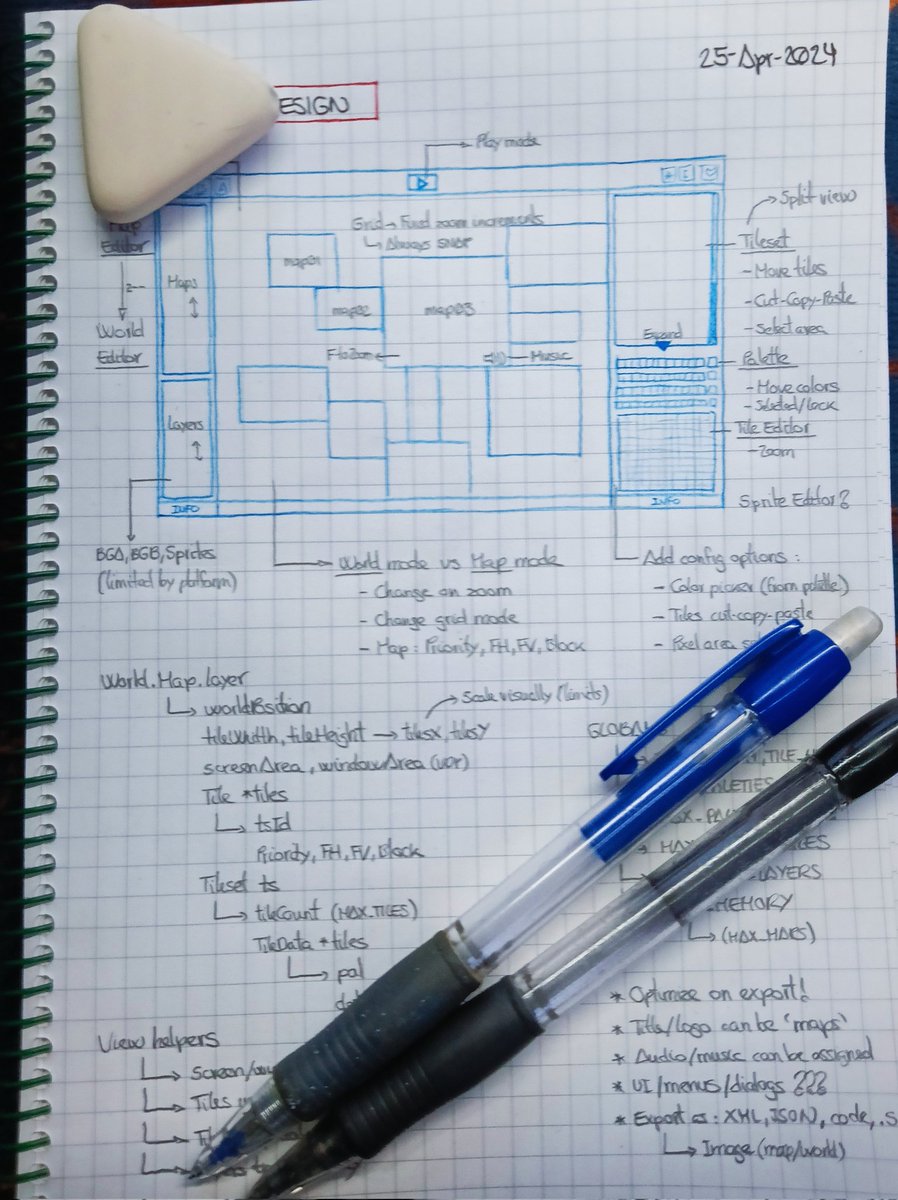 25-Apr-2024
ESIGN
Play mode
Split view
Map
Editor
World
Editor
Maps
Layers
INFO
Grid → Fixed zoom increments
Always snap
map01
map02
map03
Music
Expand
INFO
Tileset
- Move tiles
- Cut-Copy-Paste
- Select area
Palette
- Move colors
- Selected/lock
Tile Editor
- Zoom
Sprite Editor?
BGA, BGB, Sprites
(limited by platform)
World mode vs Map mode
- Change on zoom
- Change grid mode
- Map: Priority, FH, FV, Block
Add config options:
- Color picker (from palette)
- Tiles cut-copy-paste
- Pixel area
World.Map.layer
worldPosition
tileWidth, tileHeight → tilesX, tilesY
Scale visually (limits)
screenArea, windowArea
Tile *tiles
tsId
Priority, FH, FV, Block
Tileset ts
tileCount (MAX_TILES)
TileData *tiles
pal
View helpers
Screen/
Tiles
GLOBAL
LAYERS
MEMORY
(MAX_MAPS)
* Optimize on export!
* Title/logo can be 'maps'
* Audio/music can be assigned
* UI/menus/dialogs ???
* Export as: XML, JSON, code, .s
Image (map/world)